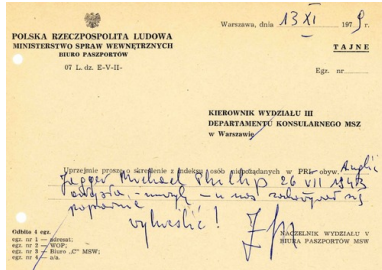 Warszawa, dnia 13 XI 1979 r.
POLSKA RZECZPOSPOLITA LUDOWA
MINISTERSTWO SPRAW WEWNĘTRZNYCH
BIURO PASZPORTÓW
07 L. dz. E-V-II-
TAJNE
Egz. nr
KIEROWNIK WYDZIAŁU III
DEPARTAMENTU KONSULARNEGO MSZ
w Warszawie
Uprzejmie proszę o skreślenie z indeksu osób niepożądanych w PRL obyw. Anglii
Jagger Michael Philip 26 VII 1943
u nas się
poprawnie
wykreślić!
Odbito 4 egz.
egz. nr 1 — adresat;
egz. nr 2 — WOP;
egz. nr 3 — Biuro „C" MSW;
egz. nr 4 — a/a.
NACZELNIK WYDZIAŁU V
BIURA PASZPORTÓW MSW